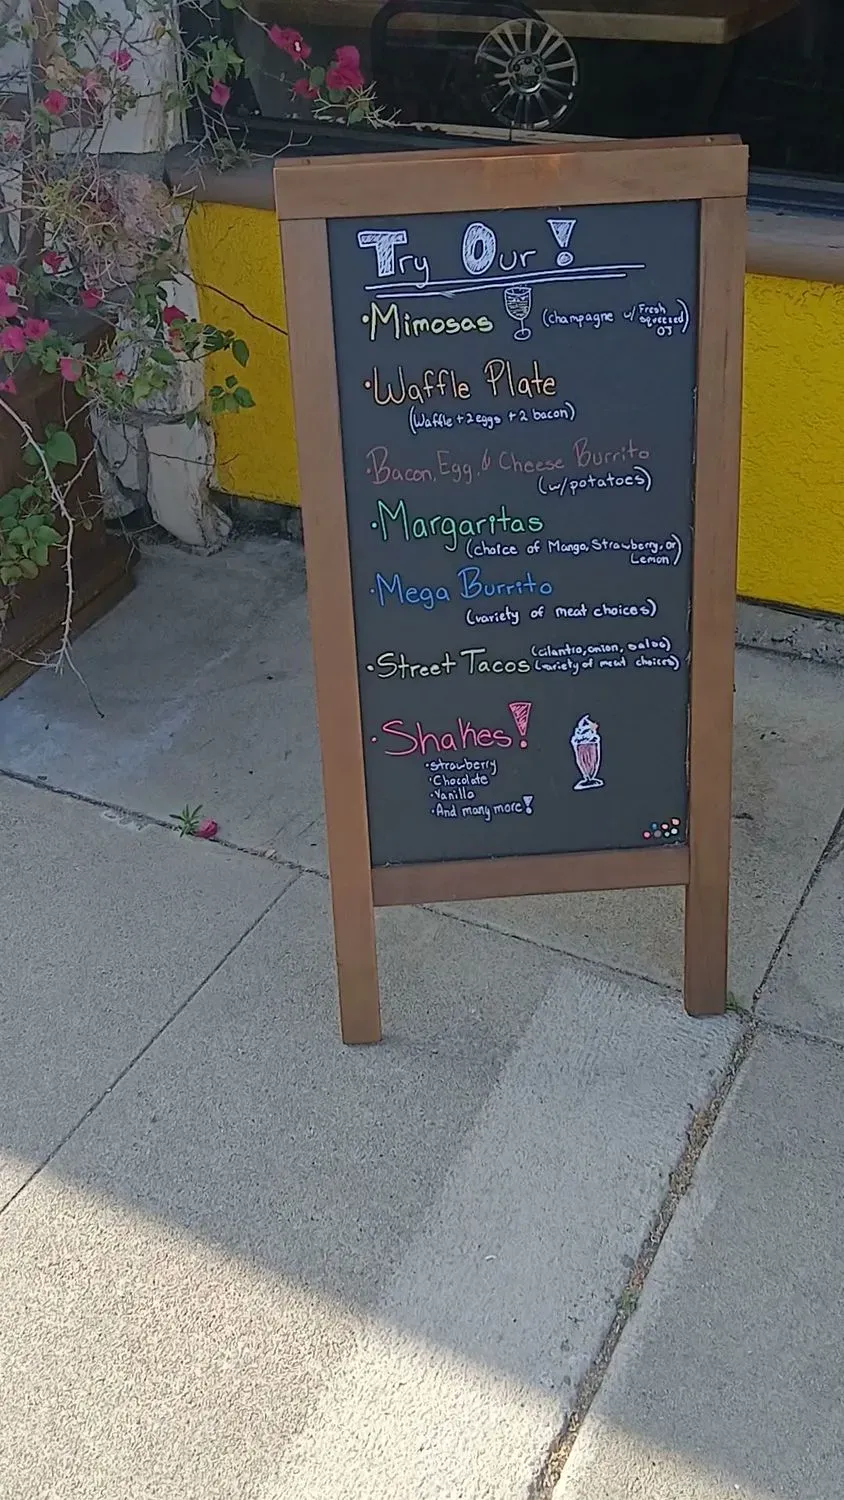 Try Our!
• Mimosas (champagne w/ Fresh squeezed OJ)
• Waffle Plate
(Waffle + 2 eggs + 2 bacon)
• Bacon, Egg, & Cheese Burrito
(w/potatoes)
• Margaritas
(choice of Mango, Strawberry, or
Lemon)
• Mega Burrito
(variety of meat choices)
• Street Tacos (cilantro, onion, salsa)
(variety of meat choices)
• Shakes!
• Strawberry
• Chocolate
• Vanilla
• And many more!